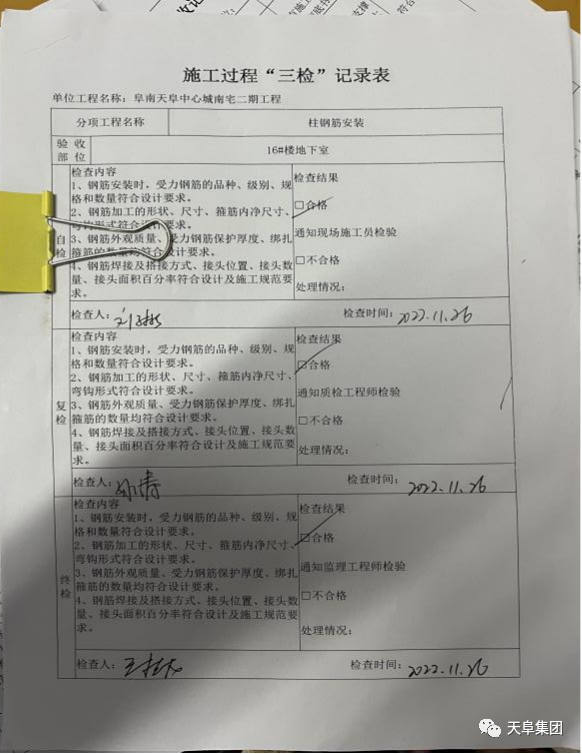 施工过程“三检”记录表
单位工程名称：阜南天阜中心城南宅二期工程
分项工程名称 柱钢筋安装
验收部位 16#楼地下室
自检
检查内容
1、钢筋安装时，受力钢筋的品种、级别、规
格和数量符合设计要求。
2、钢筋加工的形状、尺寸、箍筋内净尺寸、
弯钩形式符合设计要求。
3、钢筋外观质量、受力钢筋保护厚度、绑扎
箍筋的数量均符合设计要求。
4、钢筋焊接及搭接方式、接头位置、接头数
量、接头面积百分率符合设计及施工规范要
求。
检查结果
□合格
通知现场施工员检验
□不合格
处理情况：
检查人： 检查时间：2022.11.26
复检
检查内容
1、钢筋安装时，受力钢筋的品种、级别、规
格和数量符合设计要求。
2、钢筋加工的形状、尺寸、箍筋内净尺寸、
弯钩形式符合设计要求。
3、钢筋外观质量、受力钢筋保护厚度、绑扎
箍筋的数量均符合设计要求。
4、钢筋焊接及搭接方式、接头位置、接头数
量、接头面积百分率符合设计及施工规范要
求。
检查结果
□合格
通知质检工程师检验
□不合格
处理情况：
检查人： 检查时间：2022.11.26
终检
检查内容
1、钢筋安装时，受力钢筋的品种、级别、规
格和数量符合设计要求。
2、钢筋加工的形状、尺寸、箍筋内净尺寸、
弯钩形式符合设计要求。
3、钢筋外观质量、受力钢筋保护厚度、绑扎
箍筋的数量均符合设计要求。
4、钢筋焊接及搭接方式、接头位置、接头数
量、接头面积百分率符合设计及施工规范要
求。
检查结果
□合格
通知监理工程师检验
□不合格
处理情况：
检查人： 检查时间：2022.11.26
天阜集团